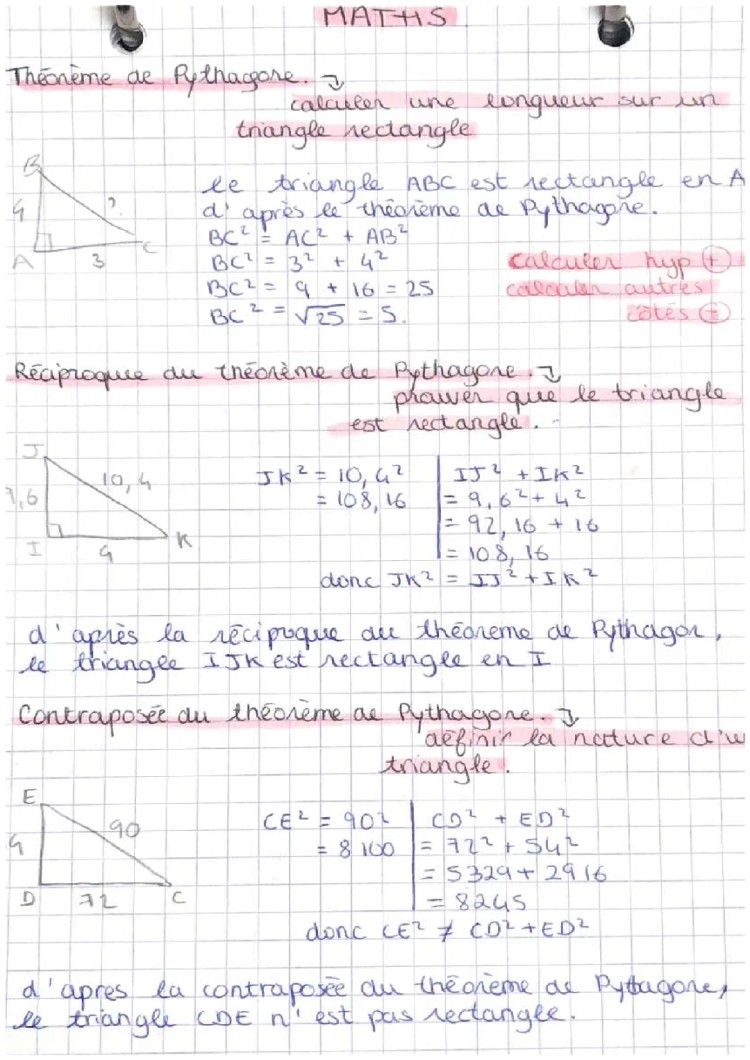 MATHS
Théorème de Pythagore. ↴
calculer une longueur sur un
triangle rectangle
B
4
?
A
3
C
le triangle ABC est rectangle en A
d'après le théorème de Pythagore.
BC² = AC² + AB²
BC² = 3² + 4²
BC² = 9 + 16 = 25
BC² = √25 = 5.
calculer hyp +
calculer autres
côtés
Réciproque du théorème de Pythagore. ↴
prouver que le triangle
est rectangle.
J
10,4
9,6
I
4
K
JK² = 10,4²
= 108,16
IJ² + IK²
= 9,6² + 4²
= 92,16 + 16
= 108,16
donc JK² = IJ² + IK²
d'après la réciproque du théorème de Pythagor,
le triangle IJK est rectangle en I
Contraposée du théorème de Pythagore. ↴
définir la nature d'u
triangle.
E
90
4
D
72
C
CE² = 90²
= 8 100
CD² + ED²
= 72² + 54²
= 5329 + 2916
= 8245
donc CE² ≠ CD² + ED²
d'apres la contraposée du théorème de Pytagore,
le triangle CDE n'est pas rectangle.